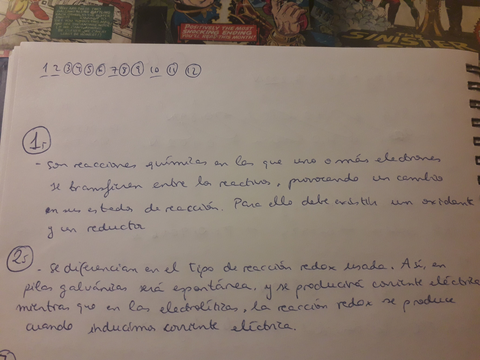 POSITIVELY THE MOST
SHOCKING ENDING
SINISTER
1 2 3 4 5 6 7 8 9 10 11 12
1.
- Son reacciones químicas en las que uno o más electrones
se transfieren entre los reactivos, provocando un cambio
en sus estados de reacción. Para ello debe existir un oxidante
y un reductor
2.
- Se diferencian en el tipo de reacción redox usada. Así, en
pilas galvánicas será espontánea, y se producirá corriente eléctrica
mientras que en las electrolíticas, la reacción redox se produce
cuando inducimos corriente eléctrica.